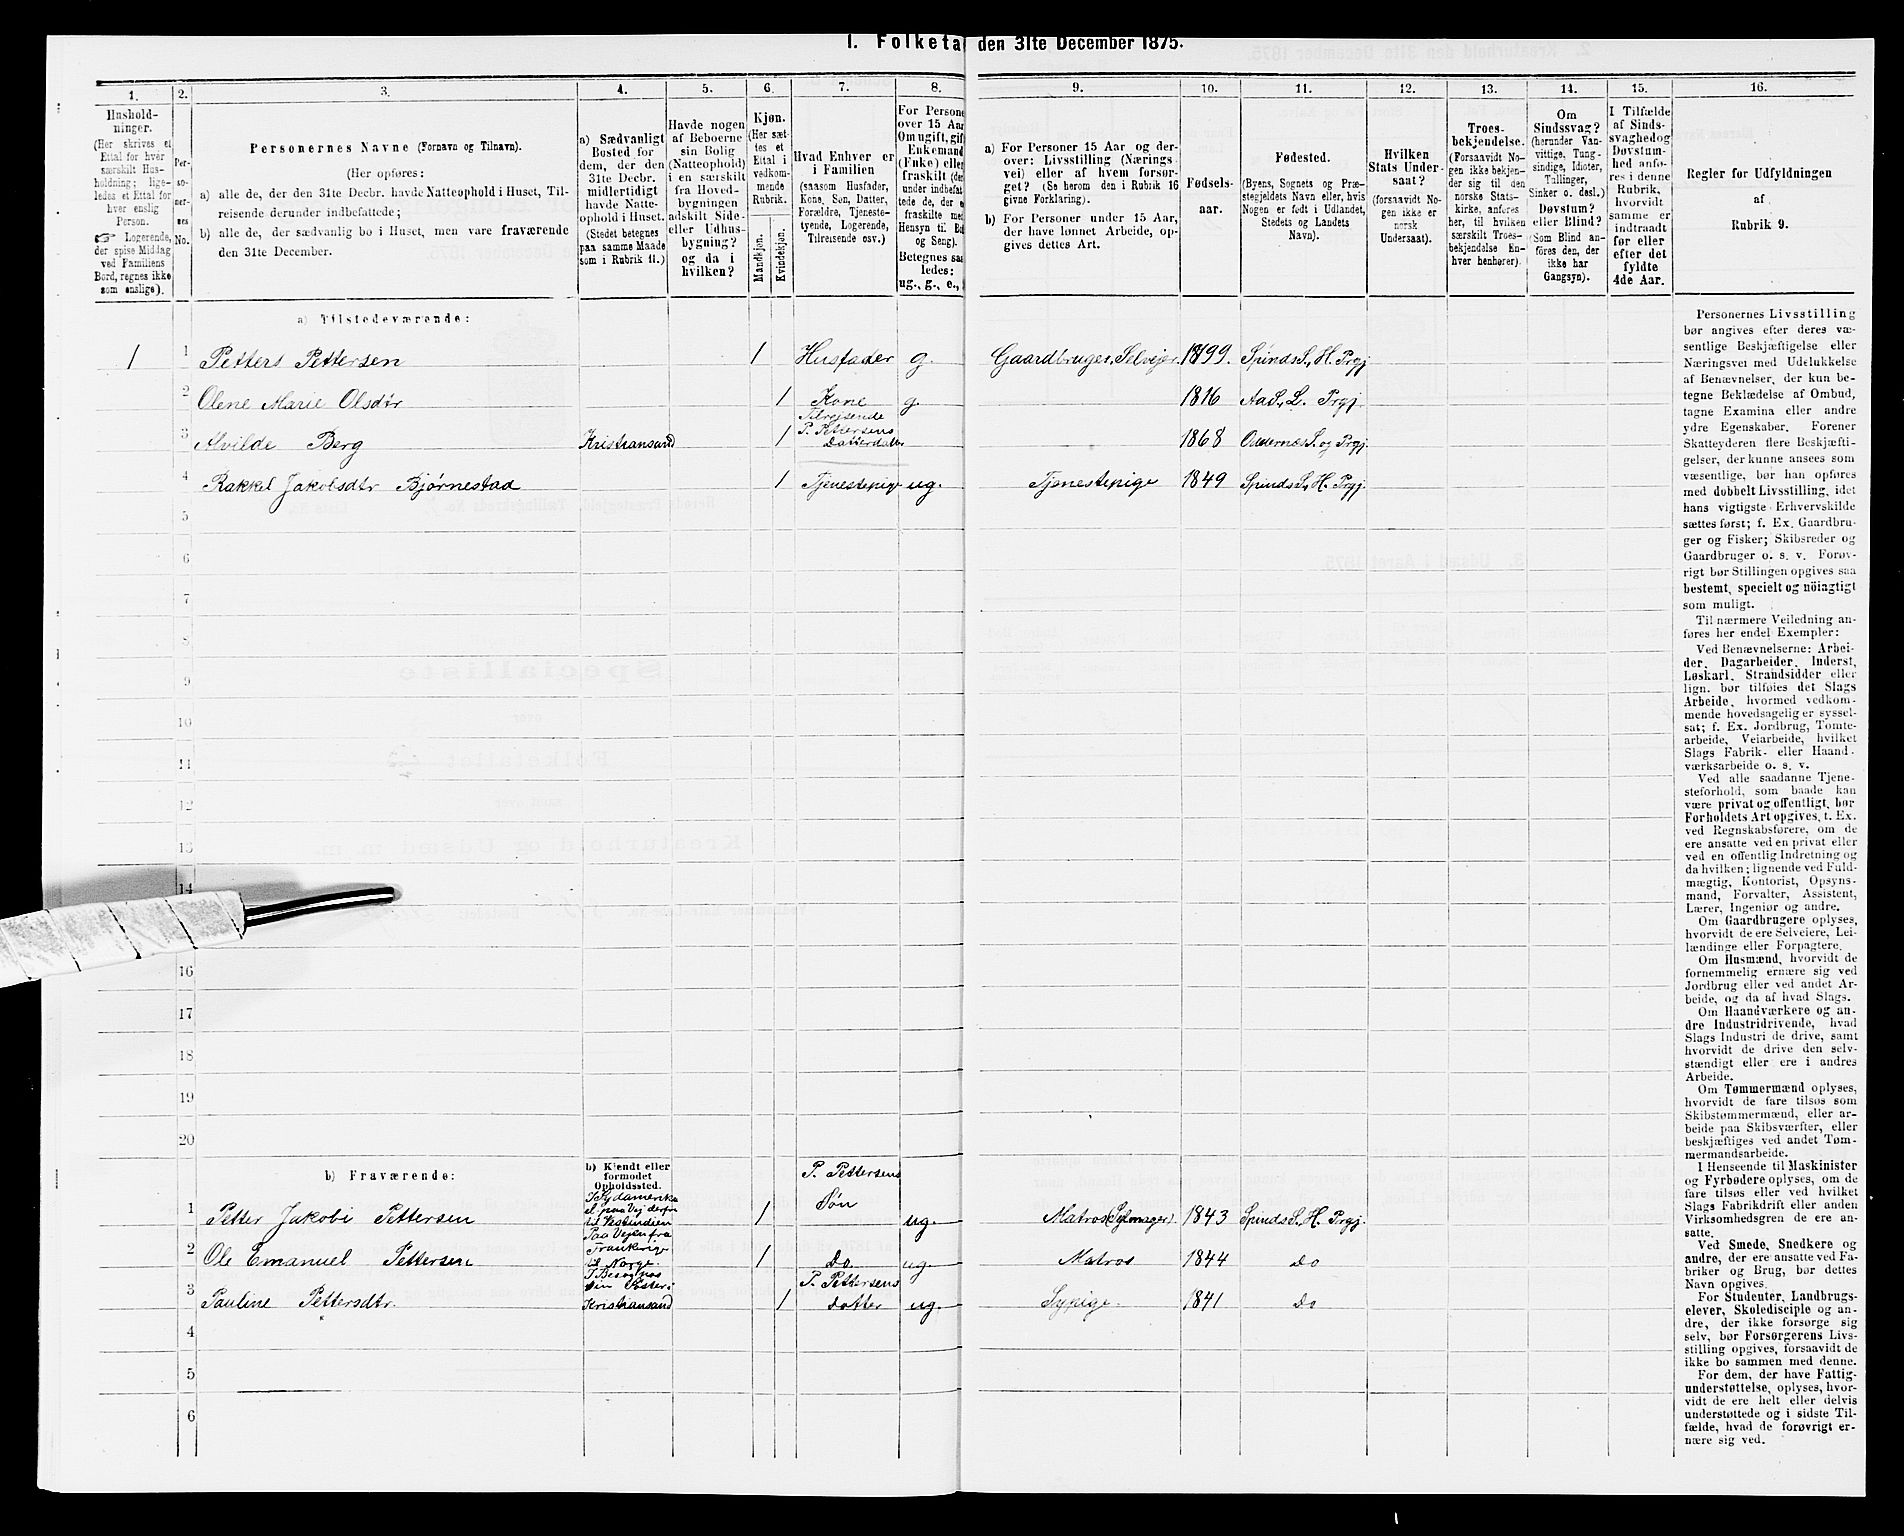 1. Folketa den 31te December 1875.
1.
2.
3.
4.
5.
6.
7.
8.
9.
10.
11.
12.
13.
14.
15.
16.
Hushold-
ninger.
(Her skrives et
Ettal for hver
særskilt Hus-
holdning; lige-
ledes et Ettal for
hver enslig
Person.
☞ Logerende,
der spise Middag
ved Familiens
Bord, regnes ikke
som enslige).
Per-
so-
ner-
nes
No.
Personernes Navne (Fornavn og Tilnavn).
(Her opføres:
a) alle de, der den 31te Decbr. havde Natteophold i Huset, Til-
reisende derunder indbefattede;
b) alle de, der sædvanlig bo i Huset, men vare fraværende
den 31te December.
a) Sædvanligt
Bosted for
dem, der den
31te Decbr.
midlertidigt
havde Natte-
ophold i Huset.
(Stedet betegnes
paa samme Maade
som i Rubrik 11.)
Havde nogen
af Beboerne
sin Bolig
(Natteophold)
i en særskilt
fra Hoved-
bygningen
adskilt Side-
eller Udhus-
bygning?
og da i
hvilken?
Kjøn.
(Her sæt-
tes et
Ettal i
vedkom-
mende
Rubrik.
Mandkjøn.
Kvindekjøn.
Hvad Enhver er
i Familien
(saasom Husfader,
Kone, Søn, Datter,
Forældre, Tjeneste-
tyende, Logerende,
Tilreisende osv.)
For Persone
over 15 Aar
Om ugift, gift
Enkemand
(Enke) elle
fraskilt (de
under indbefat
tede de, der e
fraskilte me
Hensyn til Bo
og Seng).
Betegnes saa
ledes:
ug., g., e.,
a) For Personer 15 Aar og der-
over: Livsstilling (Nærings
vei) eller af hvem forsør-
get? (Se herom den i Rubrik 16
givne Forklaring).
b) For Personer under 15 Aar,
der have lønnet Arbeide, op-
gives dettes Art.
Fødsels-
aar.
Fødested.
(Byens, Sognets og Præ-
stegjeldets Navn eller, hvis
Nogen er født i Udlandet,
Stedets og Landets
Navn).
Hvilken
Stats Under-
saat?
(forsaavidt No-
gen ikke er
norsk
Undersaat).
Troes-
bekjendelse.
(Forsaavidt No-
gen ikke bekjen-
der sig til den
norske Stats-
kirke, anføres
her, til hvilken
særskilt Troes-
bekjendelse En-
hver henhører).
Om
Sindssvag?
(herunder Van-
vittige, Tung-
sindige, Idioter,
Tullinger,
Sinker o. desl.)
Døvstum?
eller Blind?
(Som Blind an-
føres den, der
ikke har
Gangsyn).
I Tilfælde
af Sinds-
svaghed og
Døvstum-
hed anfø-
res i denne
Rubrik,
hvorvidt
samme er
indtraadt
før eller
efter det
fyldte
4de Aar.
Regler for Udfyldningen
af
Rubrik 9.
a) Tilstedeværende:
1 1 Petters Pettersen 1 Husfader g. Gaardbruger, Selvejer. 1899. Spinds S., H. Prgj
2 Olene Marie Olsdtr 1 Kone g. 1816 Aa S., L. Prgj.
3 Alvilde Berg Kristiansand 1 Tilrejsende
P. Pettersens
Datterdatter 1868 Oddernæs S. og Prgj.
4 Rakkel Jakobsdtr Bjørnestad 1 Tjenestepige ug. Tjenestepige 1849 Spinds S., H. Prgj.
5
6
7
8
9
10
11
12
13
14
16
17
18
19
20
b) Fraværende:
b) Kjendt eller
formodet
Opholdssted.
1 Petter Jakobi Pettersen I Sydamerika
el. paa Vej derfra
til Vestindien 1 P. Pettersens
Søn ug. Matros (Sejlmager). 1843 Spinds S., H. Prgj.
2 Ole Emanuel Pettersen Paa Vejen fra
Frankrige
til Norge. 1 Do. ug. Matros 1844 Do
3 Pauline Pettersdtr. I Besøg hos
sin Søster i
Kristiansand 1 P. Pettersens
Datter ug. Sypige. 1841 Do
4
5
6
Personernes Livsstilling
bør angives efter deres væ-
sentlige Beskjæftigelse eller
Næringsvei med Udelukkelse
af Benævnelser, der kun be-
tegne Beklædelse af Ombud,
tagne Examina eller andre
ydre Egenskaber. Forener
Skatteyderen flere Beskjæfti-
gelser, der kunne ansees som
væsentlige, bør han opføres
med dobbelt Livsstilling, idet
hans vigtigste Erhvervskilde
sættes først; f. Ex. Gaardbru-
ger og Fisker; Skibsreder og
Gaardbruger o. s. v. Forøv-
rigt bør Stillingen opgives saa
bestemt, specielt og nöiagtigt
som muligt.
Til nærmere Veiledning an-
føres her endel Exempler:
Ved Benævnelserne: Arbei-
der, Dagarbeider, Inderst,
Løskarl, Strandsidder eller
lign. bør tilføies det Slags
Arbeide, hvormed vedkom-
mende hovedsagelig er syssel-
sat; f. Ex. Jordbrug, Tomte-
arbeide, Veiarbeide, hvilket
Slags Fabrik- eller Haand-
værksarbeide o. s. v.
Ved alle saadanne Tjene-
steforhold, som baade kan
være privat og offentligt, bør
Forholdets Art opgives, t. Ex.
ved Regnskabsførere, om de
ere ansatte ved en privat eller
ved en offentlig Indretning og
da hvilken; lignende ved Fuld-
mægtig, Kontorist, Opsyns-
mand, Forvalter, Assistent,
Lærer, Ingeniør og andre.
Om Gaardbrugere oplyses,
hvorvidt de ere Selveiere, Lei-
lændinge eller Forpagtere.
Om Husmænd, hvorvidt de
fornemmelig ernære sig ved
Jordbrug eller ved andet Ar-
beide, og da af hvad Slags.
Om Haandværkere og an-
dre Industridrivende, hvad
Slags Industri de drive, samt
hvorvidt de drive den selv-
stændigt eller ere i andres
Arbeide.
Om Tømmermænd oplyses,
hvorvidt de fare tilsøs som
Skibstømmermænd, eller ar-
beide paa Skibsværfter, eller
beskjæftiges ved andet Tøm-
mermandsarbeide.
I Henseende til Maskinister
og Fyrbødere oplyses, om de
fare tilsøs eller ved hvilket
Slags Fabrikdrift eller anden
Virksomhedsgren de ere an-
satte.
Ved Smede, Snedkere og
andre, der ere ansatte ved Fa-
briker og Brug, bør dettes
Navn opgives.
For Studenter, Landbrugs-
elever, Skoledisciple og an-
dre, der ikke forsørge sig
selv, bør Forsørgerens Livs-
stilling opgives, forsaavidt de
ikke bo sammen med denne.
For dem, der have Fattig-
understøttelse, oplyses, hvor-
vidt de ere helt eller delvis
understøttede og i sidste Til-
fælde, hvad de forøvrigt er-
nære sig ved.